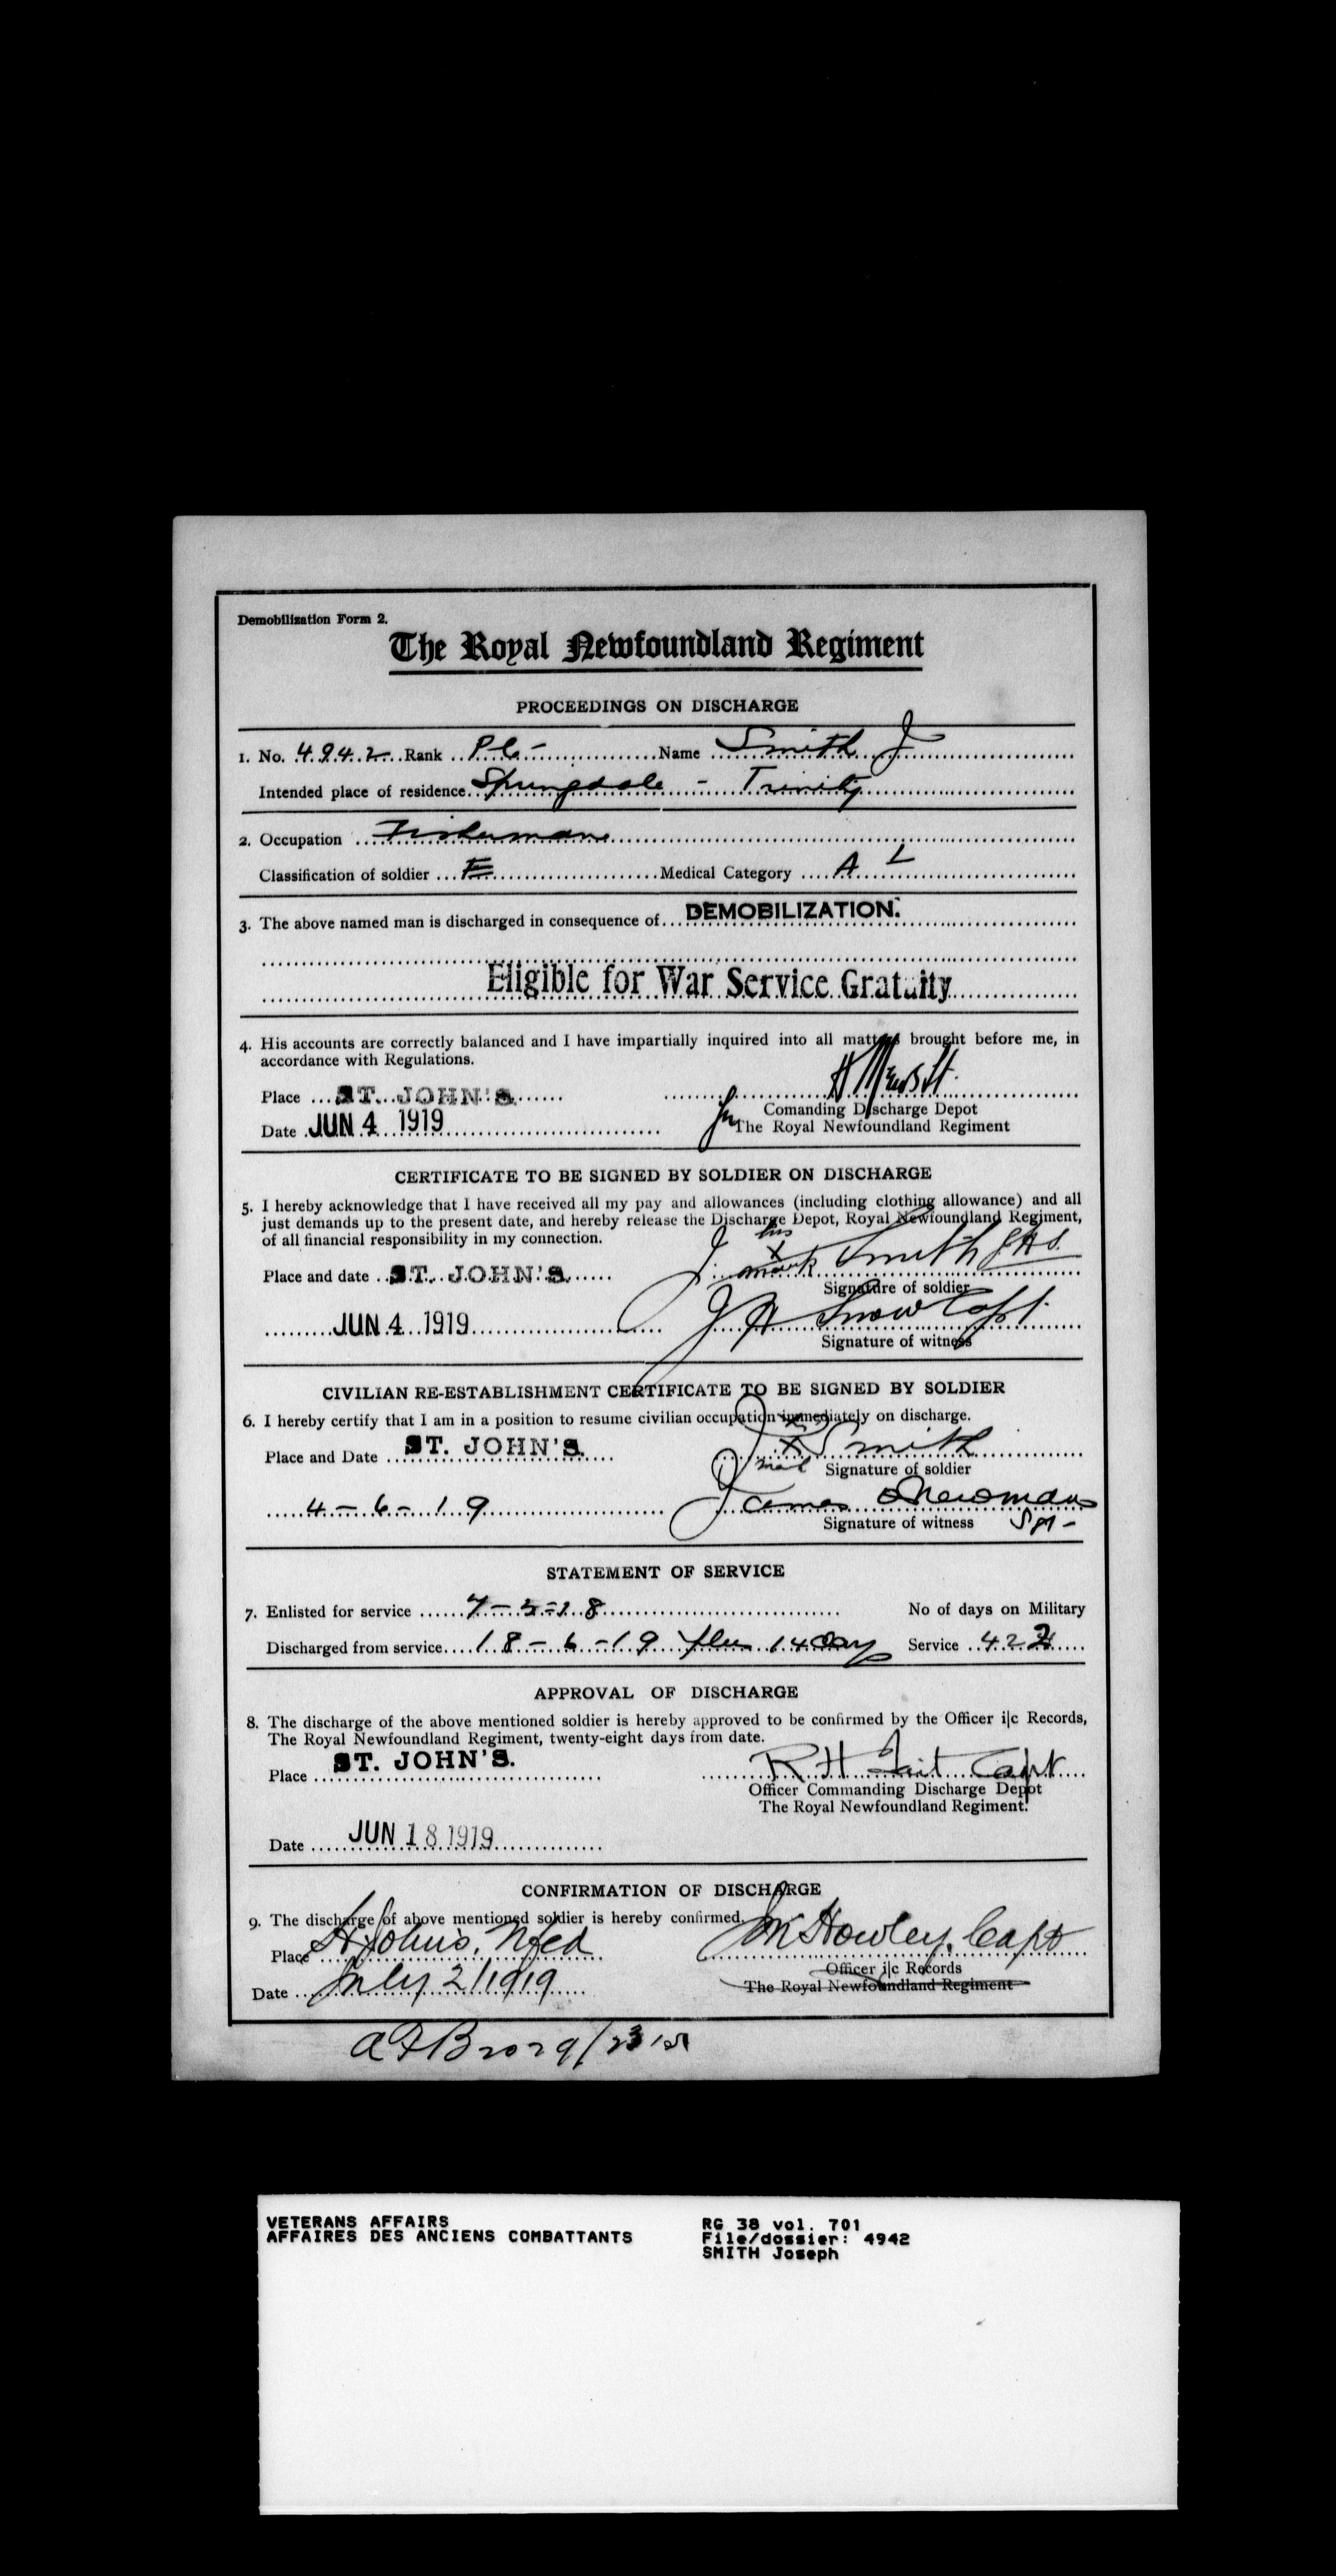 Demobilization Form 2.
The Royal Newfoundland Regiment
PROCEEDINGS ON DISCHARGE
1. No. 4942 Rank Pte- Name Smith J
Intended place of residence Springdale - Trinity
2. Occupation Fisherman
Classification of soldier E Medical Category A
3. The above named man is discharged in consequence of DEMOBILIZATION.
Eligible for War Service Gratuity
4. His accounts are correctly balanced and I have impartially inquired into all matters brought before me, in
accordance with Regulations.
Place ST. JOHN'S
Comanding Discharge Depot
Date JUN 4 1919 The Royal Newfoundland Regiment
CERTIFICATE TO BE SIGNED BY SOLDIER ON DISCHARGE
5. I hereby acknowledge that I have received all my pay and allowances (including clothing allowance) and all
just demands up to the present date, and hereby release the Discharge Depot, Royal Newfoundland Regiment,
of all financial responsibility in my connection.
his
Place and date ST. JOHN'S J. X Smith
mark
Signature of soldier
JUN 4 1919 J A Snow Capt.
Signature of witness
CIVILIAN RE-ESTABLISHMENT CERTIFICATE TO BE SIGNED BY SOLDIER
6. I hereby certify that I am in a position to resume civilian occupation immediately on discharge.
Place and Date ST. JOHN'S J X Smith
Signature of soldier
4-6-19 James Newman
Signature of witness Sgt-
STATEMENT OF SERVICE
7. Enlisted for service 7-5-18 No of days on Military
Discharged from service 18-6-19 plus 14 day Service 422
APPROVAL OF DISCHARGE
8. The discharge of the above mentioned soldier is hereby approved to be confirmed by the Officer i|c Records,
The Royal Newfoundland Regiment, twenty-eight days from date.
Place ST. JOHN'S. R H Tait Capt
Officer Commanding Discharge Depot
The Royal Newfoundland Regiment.
Date JUN 18 1919
CONFIRMATION OF DISCHARGE
9. The discharge of above mentioned soldier is hereby confirmed.
Place St John's, Nfld Howley, Capt
Officer i|c Records
Date July 2/1919 The Royal Newfoundland Regiment
VETERANS AFFAIRS RG 38 vol. 701
AFFAIRES DES ANCIENS COMBATTANTS File/dossier: 4942
SMITH Joseph